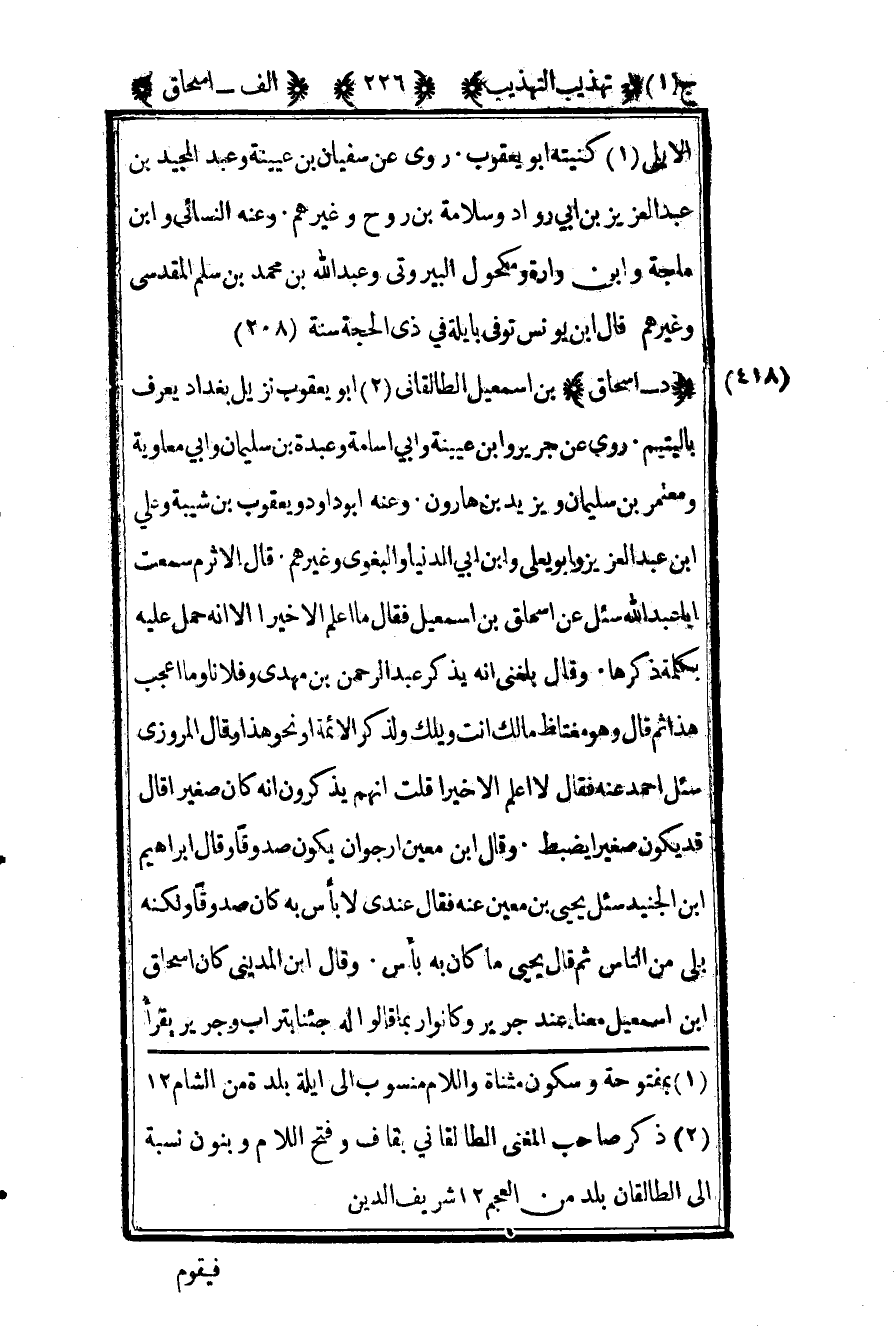 ج(١) تهذيب التهذيب ٢٢٦ الف ــ اسحاق
الايلي (١) كنيته ابو يعقوب . روى عن سفيان بن عيينة وعبد المجيد بن
عبد العزيز بن ابي رواد وسلامة بن روح وغيرهم . وعنه النسائي وابن
ماجة وابن وارة ومكحول البيروتى وعبد الله بن محمد بن سلم المقدسى
وغيرهم قال ابن يونس توفى بايلة في ذى الحجة سنة (٢٠٨)
(٤١٨) د ــ اسحاق بن اسمعيل الطالقانى (٢) ابو يعقوب نزيل بغداد يعرف
باليتيم . روى عن جرير وابن عيينة وابي اسامة وعبدة بن سليمان وابي معاوية
ومعتمر بن سليمان ويزيد بن هارون . وعنه ابو داود ويعقوب بن شيبة وعلي
ابن عبد العزيز وابو يعلى وابن ابي الدنيا والبغوى وغيرهم . قال الاثرم سمعت
ابا عبد الله سئل عن اسحاق بن اسمعيل فقال ما اعلم الا خيرا الا انه حمل عليه
بكلمة ذكرها . وقال بلغنى انه يذكر عبد الرحمن بن مهدى وفلانا وما اعجب
هذا ثم قال وهو مغتاظ مالك انت ويلك ولذكر الائمة او نحو هذا وقال المروزى
سئل احمد عنه فقال لا اعلم الا خيرا قلت انهم يذكرون انه كان صغيرا قال
قد يكون صغيرا يضبط . وقال ابن معين ارجو ان يكون صدوقًا وقال ابراهيم
ابن الجنيد سئل يحيى بن معين عنه فقال عندى لا بأس به كان صدوقًا ولكنه
بلى من الناس ثم قال يحيى ما كان به بأس . وقال ابن المدينى كان اسحاق
ابن اسمعيل معنا عند جرير وكانوا ربما قالوا له جئنا بتراب وجرير يقرأ
(١) بمفتوحة وسكون مثناة واللام منسوب الى ايلة بلدة من الشام ١٢
(٢) ذكر صاحب المغنى الطالقاني بقاف وفتح اللام وبنون نسبة
الى الطالقان بلد من العجم ١٢ شريف الدين
فيقوم